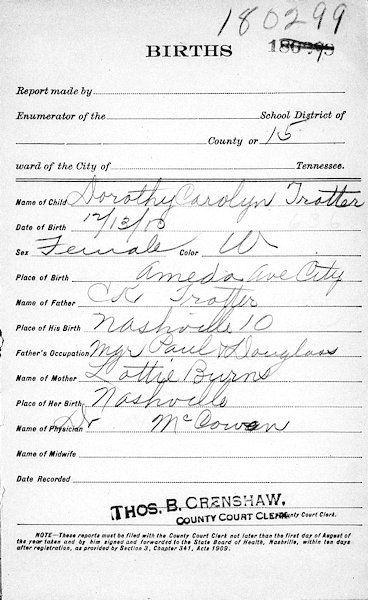 180299
BIRTHS 180299
Report made by
Enumerator of the School District of
County or 15
ward of the City of Tennessee.
Name of Child Dorothy Carolyn Trotter
Date of Birth 12/13/10
Sex Female Color W
Place of Birth Ameda Ave City
Name of Father CK Trotter
Place of His Birth Nashville 10
Father's Occupation Mgr Paul & Douglass
Name of Mother Lottie Burns
Place of Her Birth Nashville
Name of Physician Dr McCowen
Name of Midwife
Date Recorded
THOS. B. CRENSHAW,
COUNTY COURT CLERK County Court Clerk.
NOTE—These reports must be filed with the County Court Clerk not later than the first day of August of
the year taken and by him signed and forwarded to the State Board of Health, Nashville, within ten days
after registration, as provided by Section 3, Chapter 341, Acts 1909.